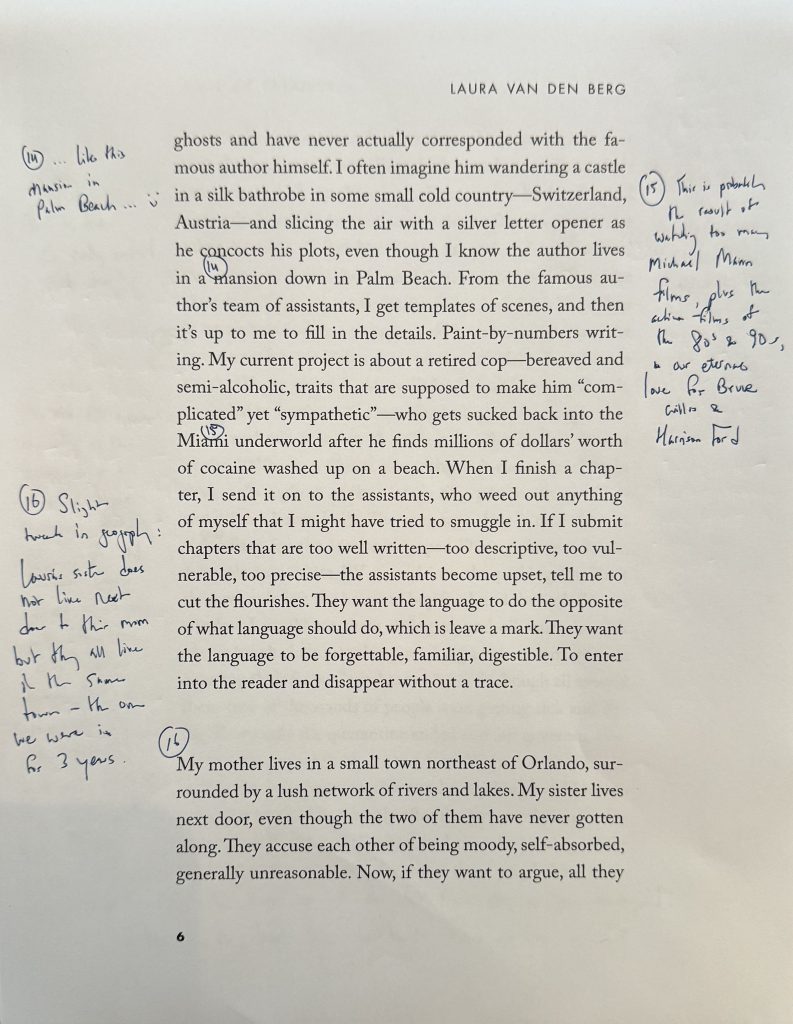 LAURA VAN DEN BERG
ghosts and have never actually corresponded with the fa-
mous author himself. I often imagine him wandering a castle
in a silk bathrobe in some small cold country—Switzerland,
Austria—and slicing the air with a silver letter opener as
he concocts his plots, even though I know the author lives
14
in a mansion down in Palm Beach. From the famous au-
thor's team of assistants, I get templates of scenes, and then
it's up to me to fill in the details. Paint-by-numbers writ-
ing. My current project is about a retired cop—bereaved and
semi-alcoholic, traits that are supposed to make him “com-
plicated” yet “sympathetic”—who gets sucked back into the
15
Miami underworld after he finds millions of dollars' worth
of cocaine washed up on a beach. When I finish a chap-
ter, I send it on to the assistants, who weed out anything
of myself that I might have tried to smuggle in. If I submit
chapters that are too well written—too descriptive, too vul-
nerable, too precise—the assistants become upset, tell me to
cut the flourishes. They want the language to do the opposite
of what language should do, which is leave a mark. They want
the language to be forgettable, familiar, digestible. To enter
into the reader and disappear without a trace.
16
My mother lives in a small town northeast of Orlando, sur-
rounded by a lush network of rivers and lakes. My sister lives
next door, even though the two of them have never gotten
along. They accuse each other of being moody, self-absorbed,
generally unreasonable. Now, if they want to argue, all they
6
14 ... like this
mansion in
Palm Beach ...
15 This is probably
the result of
watching too many
Michael Mann
films, plus the
action films of
the 80s & 90s,
& our eternal
love for Bruce
Willis &
Harrison Ford
16 Slight
tweak in geography:
Laura's sister does
not live next
door to their mom
but they all live
in the same
town – the one
we were in
for 3 years.